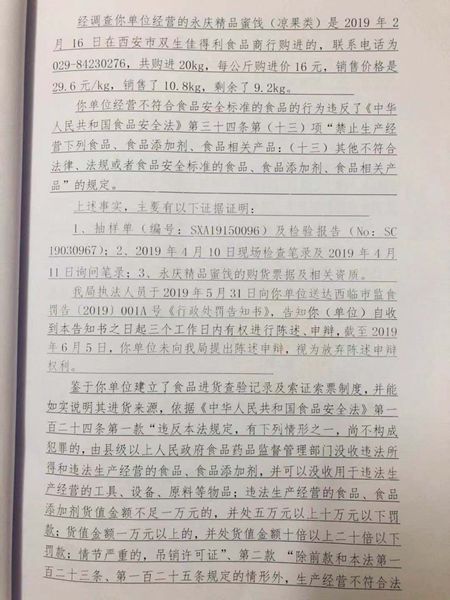 经调查你单位经营的永庆精品蜜饯（凉果类）是 2019 年 2
月 16 日在西安市双生佳得利食品商行购进的，联系电话为
029-84230276，共购进 20kg，每公斤购进价 16 元，销售价格是
29.6 元/kg，销售了 10.8kg，剩余了 9.2kg。
你单位经营不符合食品安全标准的食品的行为违反了《中华
人民共和国食品安全法》第三十四条第（十三）项“禁止生产经
营下列食品、食品添加剂、食品相关产品：（十三）其他不符合
法律、法规或者食品安全标准的食品、食品添加剂、食品相关产
品”的规定。
上述事实，主要有以下证据证明：
1、抽样单（编号：SXA19150096）及检验报告（No：SC
19030967）；2、2019 年 4 月 10 日现场检查笔录及 2019 年 4 月
11 日询问笔录；3、永庆精品蜜饯的购货票据及相关资质。
我局执法人员于 2019 年 5 月 31 日向你单位送达西临市监食
罚告〔2019〕001A 号《行政处罚告知书》，告知你（单位）自收
到本告知书之日起三个工作日内有权进行陈述、申辩，截至 2019
年 6 月 5 日，你单位未向我局提出陈述申辩，视为放弃陈述申辩
权利。
鉴于你单位建立了食品进货查验记录及索证索票制度，并能
如实说明其进货来源，依据《中华人民共和国食品安全法》第一
百二十四条第一款“违反本法规定，有下列情形之一，尚不构成
犯罪的，由县级以上人民政府食品药品监督管理部门没收违法所
得和违法生产经营的食品、食品添加剂，并可以没收用于违法生
产经营的工具、设备、原料等物品；违法生产经营的食品、食品
添加剂货值金额不足一万元的，并处五万元以上十万元以下罚
款；货值金额一万元以上的，并处货值金额十倍以上二十倍以下
罚款；情节严重的，吊销许可证”、第二款 “除前款和本法第一
百二十三条、第一百二十五条规定的情形外，生产经营不符合法